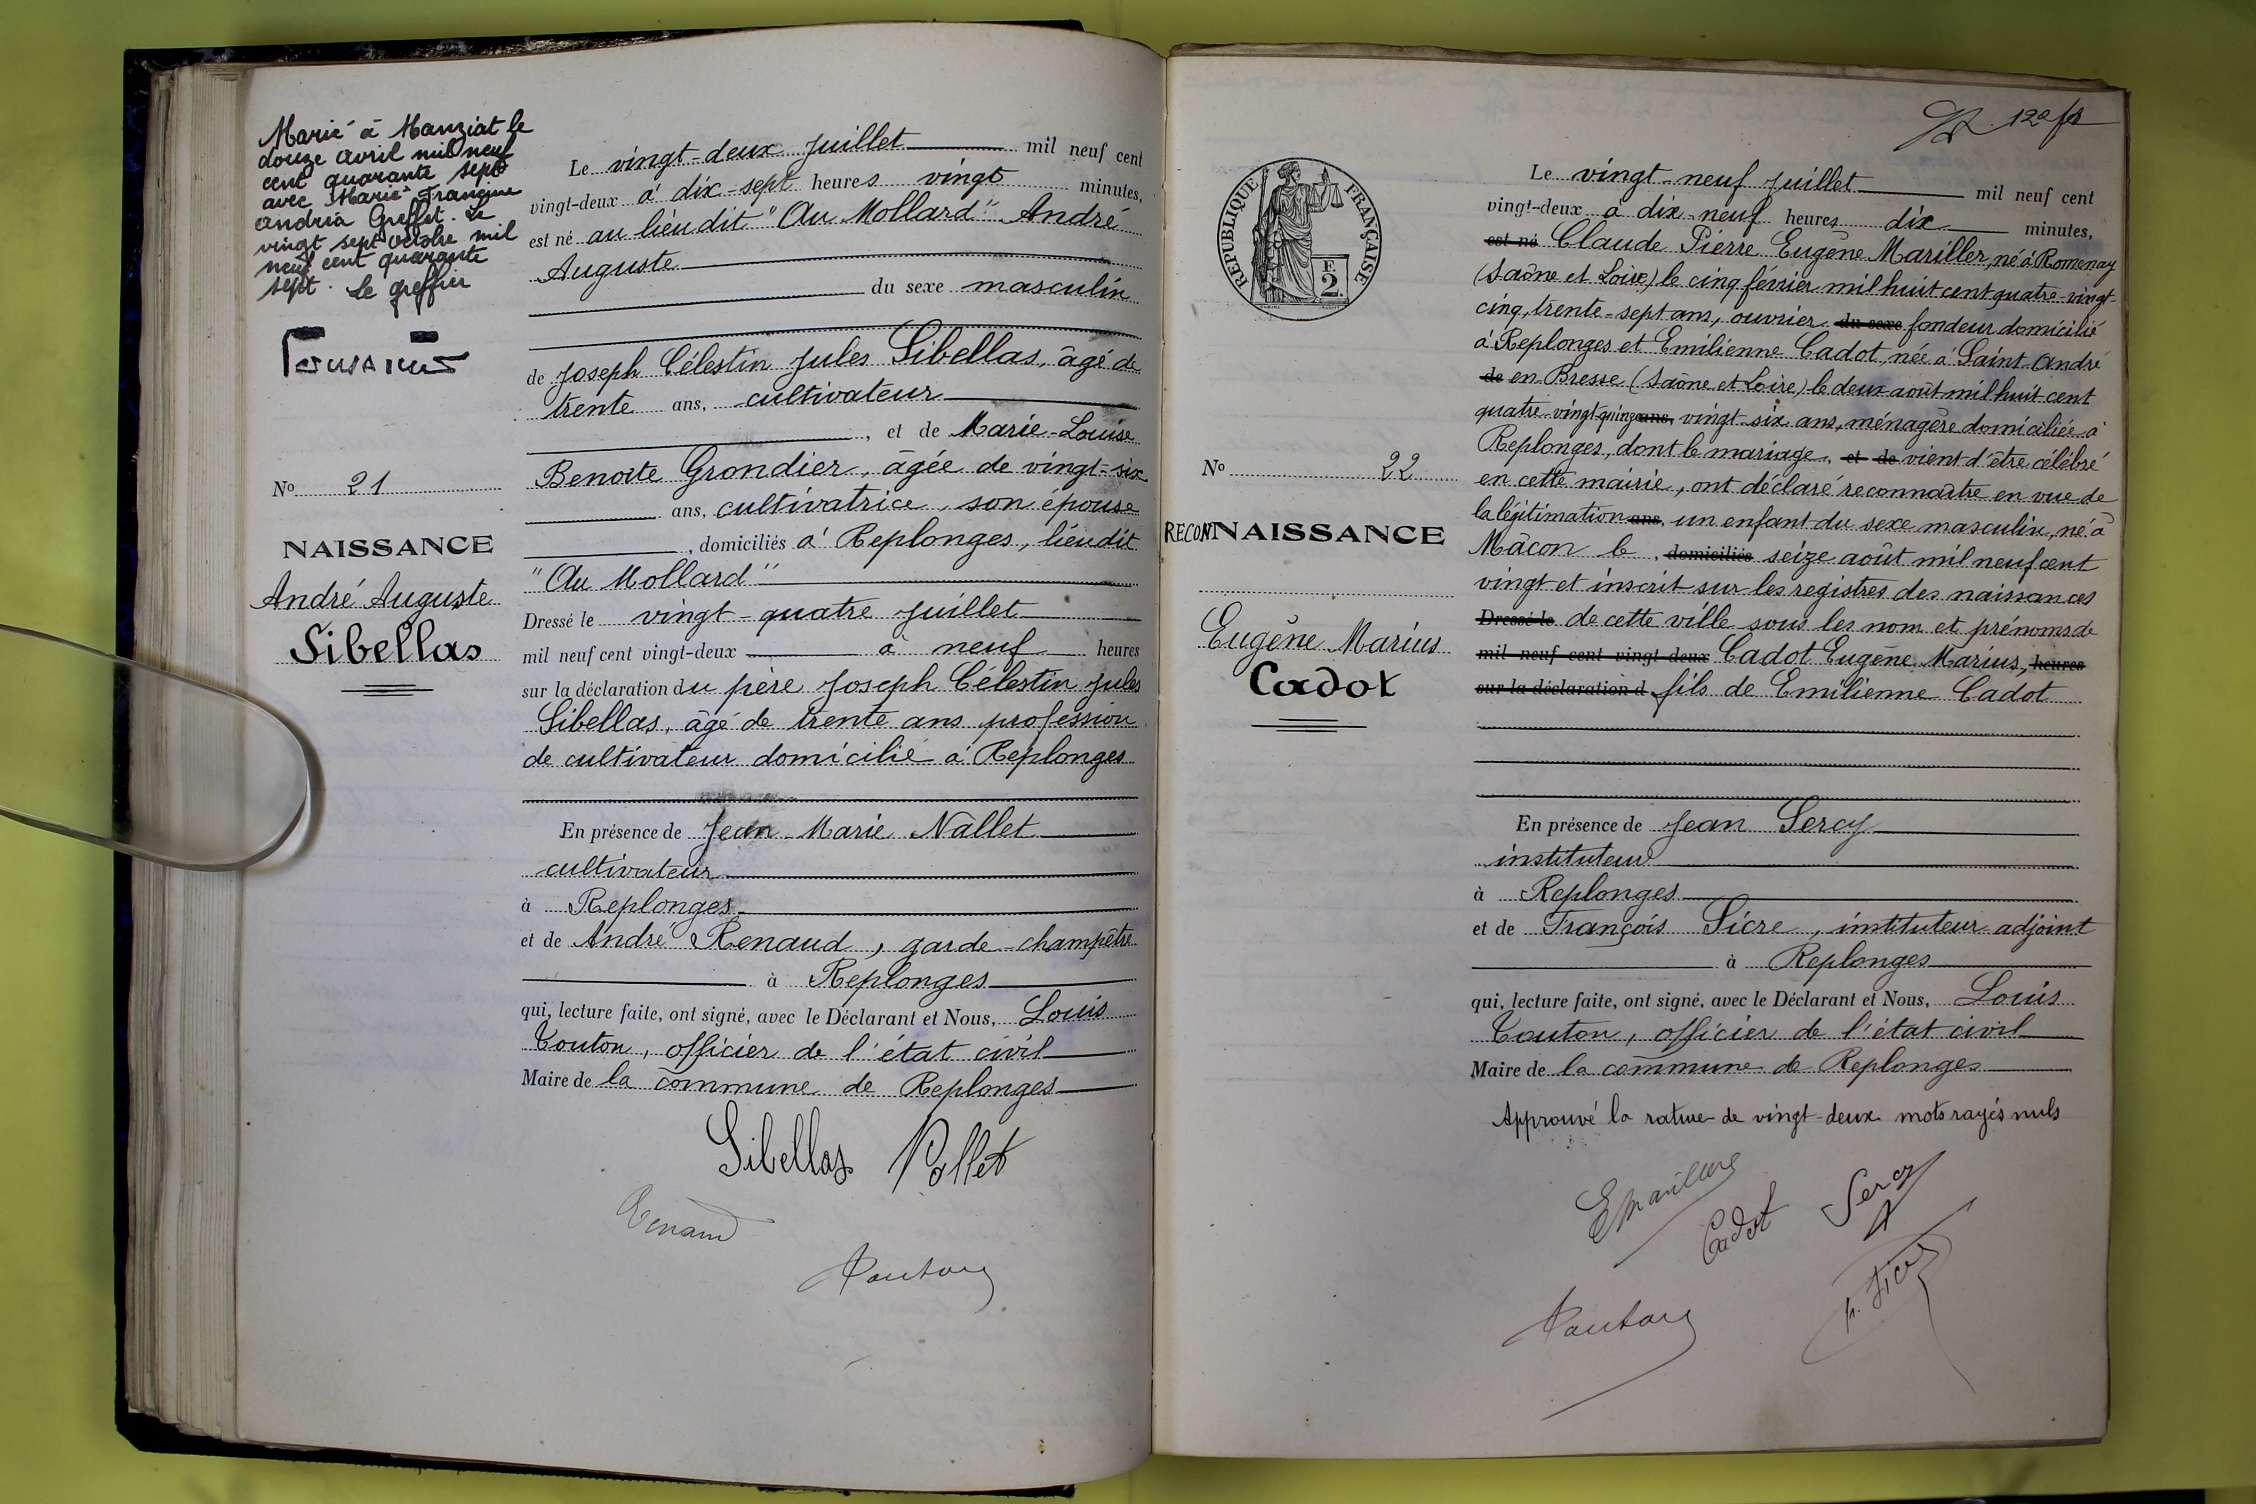 Marié à Manziat le
douze avril mil neuf
cent quarante sept
avec Marie Francine
Andréa Greffet. Le
vingt sept octobre mil
neuf cent quarante
sept. Le greffier
No 21
NAISSANCE
André Auguste
Sibellas
Le vingt-deux juillet mil neuf cent
vingt-deux à dix-sept heures vingt minutes,
est né au lieu dit "Au Mollard" André
Auguste
du sexe masculin
de Joseph Célestin Jules Sibellas, âgé de
trente ans, cultivateur
, et de Marie-Louise
Benoite Grondier, âgée de vingt-six
ans, cultivatrice, son épouse
, domiciliés à Replonges, lieu dit
"Au Mollard"
Dressé le vingt-quatre juillet
mil neuf cent vingt-deux à neuf heures
sur la déclaration du père Joseph Célestin Jules
Sibellas, âgé de trente ans profession
de cultivateur domicilié à Replonges
En présence de Jean Marie Nallet
cultivateur
à Replonges
et de André Renaud, garde-champêtre
à Replonges
qui, lecture faite, ont signé, avec le Déclarant et Nous, Louis
Touton, officier de l'état civil
Maire de la commune de Replonges
Sibellas Nallet
Renaud
Touton
12e f
RÉPUBLIQUE FRANÇAISE
F.
2.
No 22
RECONNAISSANCE
Eugène Marius
Cadot
Le vingt-neuf juillet mil neuf cent
vingt-deux à dix-neuf heures dix minutes,
est né Claude Pierre Eugène Mariller, né à Romenay
(Saône et Loire) le cinq février mil huit cent quatre-vingt-
cinq, trente-sept ans, ouvrier du sexe fondeur domicilié
à Replonges et Emilienne Cadot, née à Saint-André
de en Bresse (Saône et Loire) le deux août mil huit cent
quatre-vingt-quinze ans, vingt-six ans, ménagère domiciliée à
Replonges, dont le mariage, et de vient d'être célébré
en cette mairie, ont déclaré reconnaître en vue de
la légitimation ans, un enfant du sexe masculin, né à
Mâcon le , domiciliés seize août mil neuf cent
vingt et inscrit sur les registres des naissances
Dressé le de cette ville sous les nom et prénoms de
mil neuf cent vingt-deux Cadot Eugène Marius, heures
sur la déclaration d fils de Emilienne Cadot
En présence de Jean Sercy
instituteur
à Replonges
et de François Sicre, instituteur adjoint
à Replonges
qui, lecture faite, ont signé, avec le Déclarant et Nous, Louis
Touton, officier de l'état civil
Maire de la commune de Replonges
Approuvé la rature de vingt-deux mots rayés nuls
E Mariller
Cadot
Sercy
Touton
F. Sicre